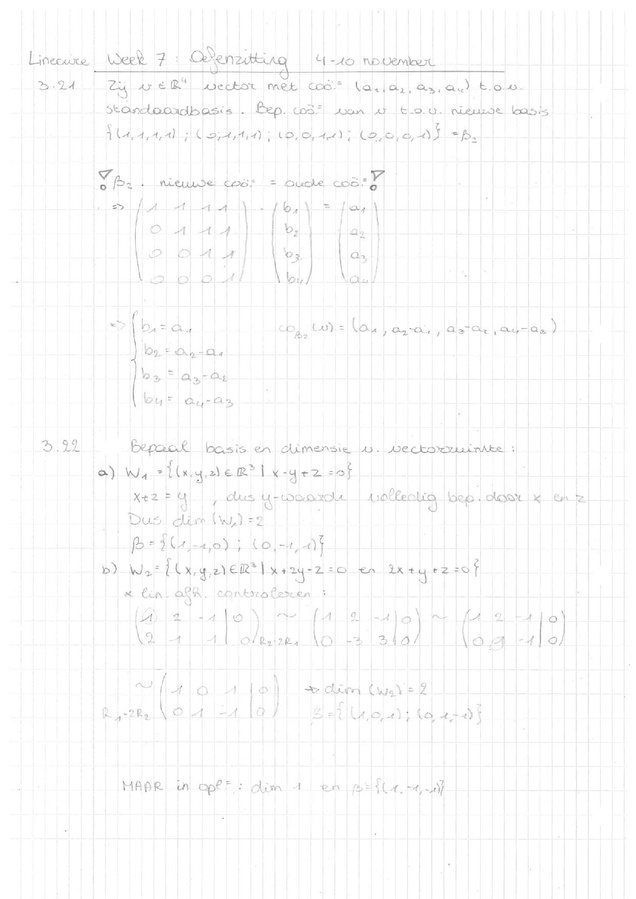 Lineaire Week 7 : Oefenzitting 4-10 november
3.21 Zij v ∈ ℝ⁴ vector met coö.ⁿ (a₁, a₂, a₃, a₄) t.o.v.
standaardbasis. Bep. coö.ⁿ van v t.o.v. nieuwe basis
{(1,1,1,1) ; (0,1,1,1) ; (0,0,1,1) ; (0,0,0,1)} = β₂
! β₂ . nieuwe coö.ⁿ = oude coö.ⁿ !
=> (1 1 1 1) . (b₁) = (a₁)
(0 1 1 1) (b₂) (a₂)
(0 0 1 1) (b₃) (a₃)
(0 0 0 1) (b₄) (a₄)
=> { b₁ = a₁ co_β₂ (v) = (a₁, a₂-a₁, a₃-a₂, a₄-a₃)
b₂ = a₂-a₁
b₃ = a₃-a₂
b₄ = a₄-a₃
3.22 Bepaal basis en dimensie v. vectorruimte :
a) W₁ = {(x,y,z) ∈ ℝ³ | x-y+z=0}
x+z = y , dus y-waarde volledig bep. door x en z
Dus dim (W₁) = 2
β = {(1,-1,0) ; (0,-1,1)}
b) W₂ = {(x,y,z) ∈ ℝ³ | x+2y-z=0 en 2x+y+z=0}
* lin. afh. controleren :
(1 2 -1 | 0) ~ (1 2 -1 | 0) ~ (1 2 -1 | 0)
(2 1 1 | 0) R₂-2R₁ (0 -3 3 | 0) (0 -1 | 0)
~ (1 0 1 | 0) → dim (W₂) = 2
R₁-2R₂ (0 1 -1 | 0) β = {(1,0,1) ; (0,1,-1)}
MAAR in oplⁿ : dim 1 en β = {(1,-1,-1)}